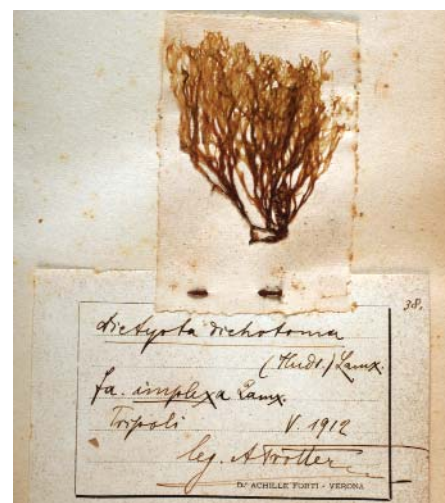 38.
Dictyota dichotoma
(Huds.) Lamx.
fa. implexa Lamx.
Tripoli V. 1912
leg. A Trotter
Dr ACHILLE FORTI - VERONA